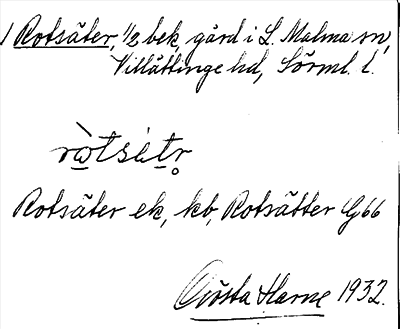 1 Rotsäter, 1/2 bek, gård i L. Malma sn,
Villåttinge hd, Sörml. l.
ròtsétr̥
Rotsäter ek, kb, Rotsätter G66
Gösta Harne 1932.